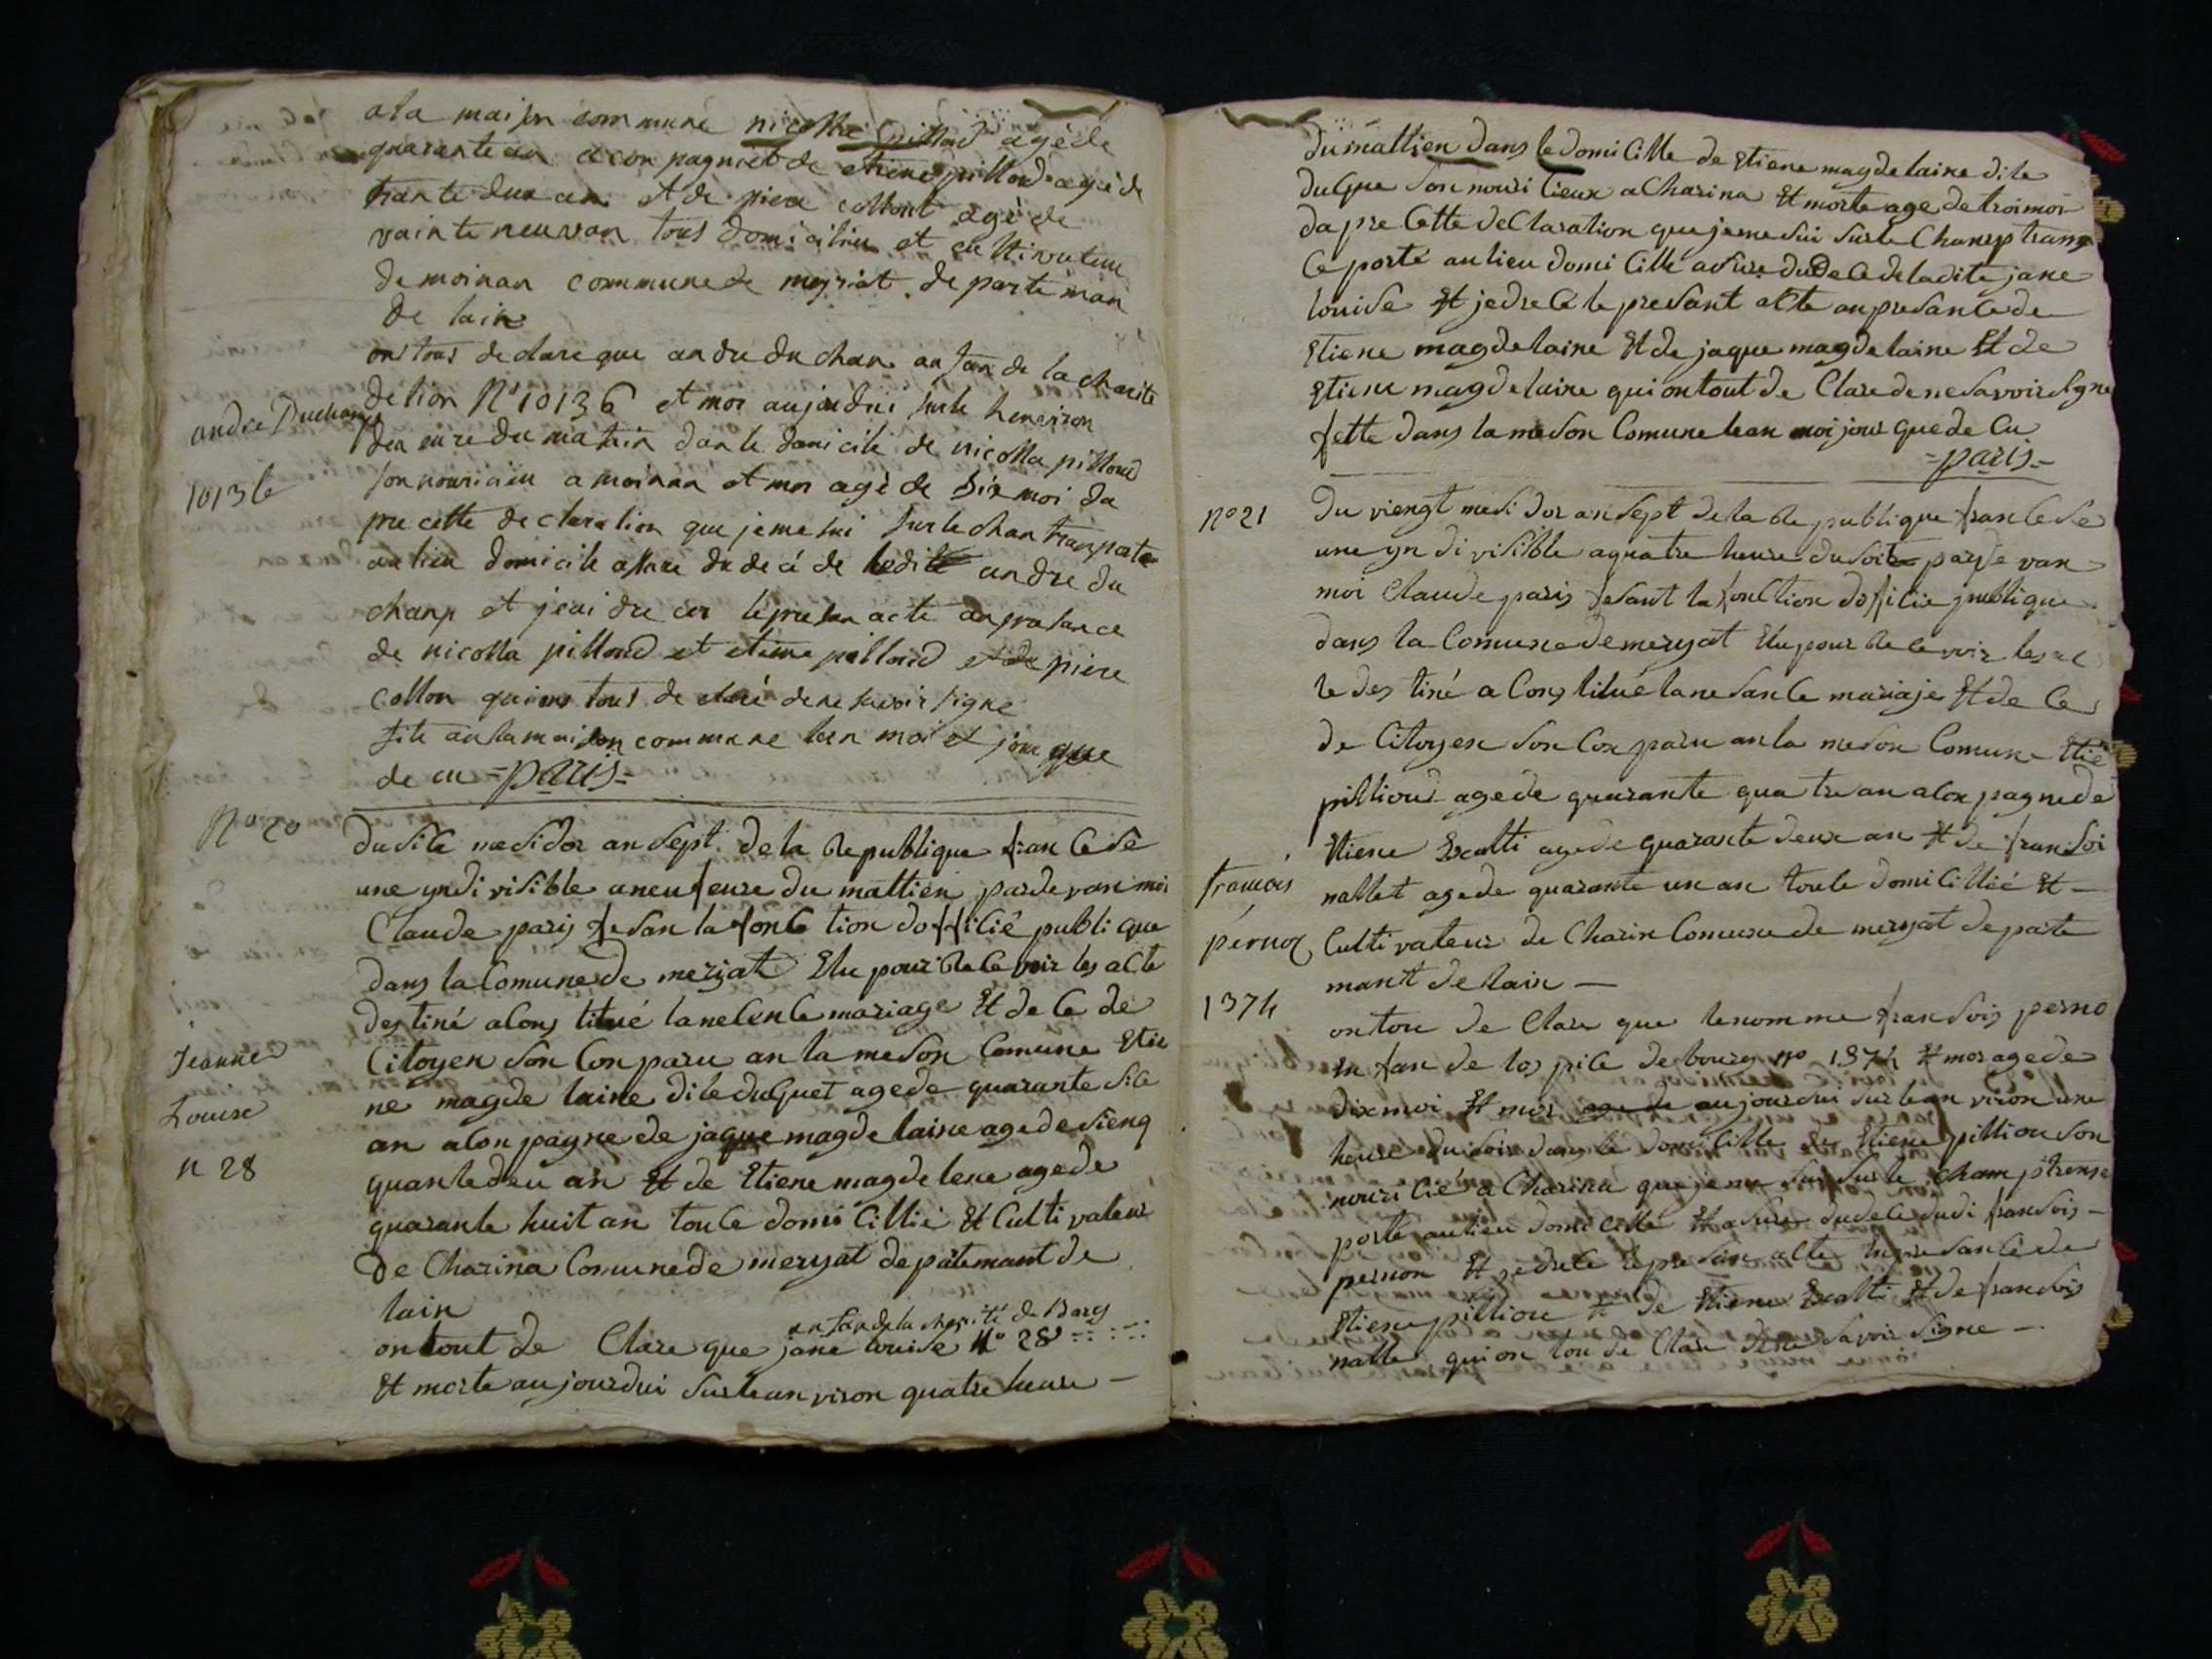 ala maison commune nicolla pilloud agéde
quarante an aconpagniet de etiene pilloud agé de
trante deux an et de piere collont agé de
vainte neuvan tous domicilriei et cultivateur
de moinan commune de meyriat de parteman
de lain
ons tous declare que andre du chan anfan de la charité
andre Duchamp
delion N° 10136 et mor aujourdui sur le henviron
deu eure du matin dan le domicile de nicolla pilloud
10136
son nouricieu a moinan et mor agé de dix moi da
pre cette declaration que je me sui sur le chan transporte
au lieu domicile assure du decé de ledite andre du
chanp et jeai dre cer le presan acte anpresance
de nicolla pilloud et etiene pilloud et de piere
collon qui ons tous de claré de ne savoir signe
fite anlamaison commune lean moi et jour que
de cu =paris=
N° 20
du sice mesidor an sept de la Republique francese
une yndivisible a neufeure du mattien pardevan moi
Claude paris fesan la fonction dofficié publique
dans la Comune de meriat Elu pour Recevoir les acte
destiné a Constitué lanesence mariage Et de ce de
Citoyen son Conparu an la meson Comune Etie
Jeanne
Louise
n 28
ne magde laine dite duguet agede quarante sice
an aconpagne de jaque magdelaine agede sienq
quantedeu an Et de Etiene magdelene agede
quarante huit an touce domicillié Et Cultivateur
De Charina Comunede meryat depatemant de
lain
anfan de la charité de Bourg
ontout de Clare que jane louise N° 28
Et morte aujourdui surlean viron quatre heure
dumattien dans ledomicille de Etiene magdelaine dite
duque son nouricieux a Charina Et morte age de troimoi
dapre Cette declaration queje me sui surle Champ trans
Ce porté aulieu domicille asure du Dece de ladite jane
louise Et jedrecé le presant acte anpresance de
Etiene magdelaine Et de jaque magdelaine Et de
Etiene magdelaine qui on tout de Clare denesavoir signe
fette dans lameson Comune lean moi jour que de Cu
=paris=
n° 21
Du viengt mesidor an sept de la Republique francese
une yndivisible aquatre heure dusoir pardevan
moi Claude paris fesant la fonction dofficie publique
dans la Comune de meryat Elu pour Recevoir les ac
te destiné a Constitué lanesance mariaje Et de Ce
de Citoyen son Conparu anla meson Comune Etie
pilliou agede quarante quatre an aconpagnede
Etiene agede quarante deux an Et de fransoi
françois
pernoz
nallet agede quarante un an touce domicillié Et
Cultivateur de Charin Comune de meryat depate
mant de lain
1374
ontou de Clare que lenomme fransois perno
en fan de lospice de bourg n° 1374 Et mor agede
dixmoi Et mor agede aujourdui surlean viron une
heure du soir dans le domicille de Etiene pilliou son
nouricié a Charina que je me sui sur le champ trense
porté aulieu domicille Et asure dudece dudi fransois
pernon Et jedrece le presan acte en presance de
Etiene pilliou Et de Etiene Et de fransois
nalle qui on tou de Clare dene savoir signe